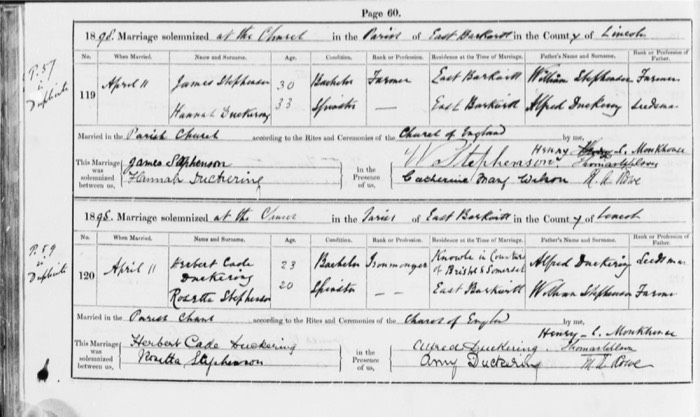 Page 60.
1898. Marriage solemnized at the Church in the Parish of East Barkwith in the County of Lincoln
No. When Married. Name and Surname. Age. Condition. Rank or Profession. Residence at the Time of Marriage. Father's Name and Surname. Rank or Profession of Father.
P. 57
in
Duplicate
119 April 11 James Stephenson 30 Bachelor Farmer East Barkwith William Stephenson Farmer
Hannah Duckering 33 Spinster — East Barkwith Alfred Duckering Seedsman
Married in the Parish Church according to the Rites and Ceremonies of the Church of England by me,
Henry C. Monkhouse
This Marriage was solemnized between us, James Stephenson
Hannah Duckering
in the Presence of us, W Stephenson
Catherine Mary Wilson
1898. Marriage solemnized at the Church in the Parish of East Barkwith in the County of Lincoln
No. When Married. Name and Surname. Age. Condition. Rank or Profession. Residence at the Time of Marriage. Father's Name and Surname. Rank or Profession of Father.
P. 59
in
Duplicate
120 April 11 Herbert Cade 23 Bachelor Ironmonger Knowle in Counties Alfred Duckering Seedsman
Duckering of Bristol & Somerset
Rosetta Stephenson 20 Spinster — — East Barkwith William Stephenson Farmer
Married in the Parish Church according to the Rites and Ceremonies of the Church of England by me,
Henry C. Monkhouse
This Marriage was solemnized between us, Herbert Cade Duckering
Rosetta Stephenson
in the Presence of us, Alfred Duckering
Amy Duckering